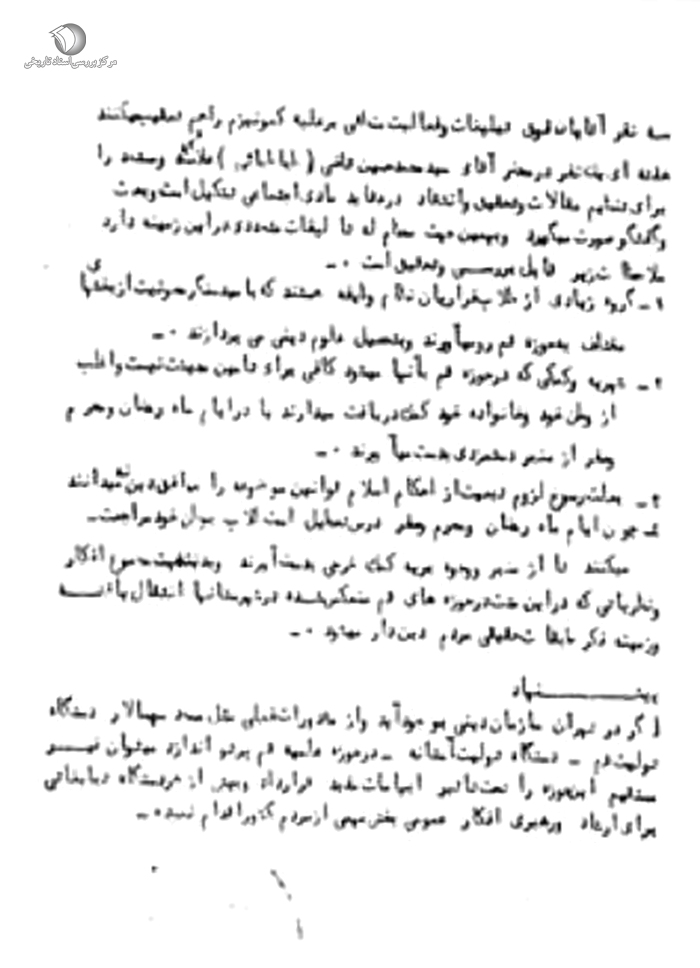 مرکز بررسی اسناد تاریخی
سه نفر آقایان فوق تبلیغات و فعالیت منافی بر علیه کمونیزم را هم تعقیب میکنند
هفته ای یک نفر در محضر آقای سید محمد حسین قاضی ( طباطبائی ) علامه و سته را
برای تنظیم مقالات و تحقیق و انتقاد در عقاید مادی اجتماعی تشکیل است و بحث
و گفتگو صورت میگیرد و بهمین جهت معظم له تا لیفات متعددی در این زمینه دارد
ملاحظات زیر قابل بررسی و تحقیق است ۰ ـ
۱ ـ گروه زیادی از طلاب فراریان نظام وظیفه هستند که با از بخشهای
مختلف بحوزه قم رو میآورند و بتحصیل علوم دینی می پردازند ۰ ـ
۲ ـ شهریه و کمکی که در حوزه قم بآنها میشود کافی برای تامین معیشت نیست و اغلب
از وطن خود و خانواده خود کمک دریافت میدارند یا در ایام ماه رمضان و محرم
و صفر از منبر دستمزدی بدست میآورند ۰ ـ
۳ ـ بعلت رسوخ لزوم تبعیت از احکام اسلام قوانین موضوعه را موافق دین نمیدانند
۴ ـ چون ایام ماه رمضان و محرم و صفر درس تعطیل است طلاب بمحل خود مراجعت ـ
میکنند تا از منبر و وجوه بریه کمک خرجی بدست آورند و بدینجهت مجموع افکار
و نظریاتی که در این مدت در حوزه های قم منعکس شده در شهرستانها انتقال یافته
و زمینه فکر طبقات حقیقی مردم دین دار میشود ۰ ـ
پیشنهاد
اگر در تهران سازمان دینی بوجود آید و از مقدورات فعلی مثل مسجد سپهسالار دستگاه
تولیت قم ـ دستگاه تولیت آستانه ـ در حوزه علمیه قم پرتو اندازد میتوان غیر
مستقیم این حوزه را تحت تاثیر ایهامات مفید قرارداد و بیش از هر دستگاه تبلیغاتی
برای ارشاد و رهبری افکار عمومی بخش مهمی از مردم کشور اقدام نمود ۰ ـ